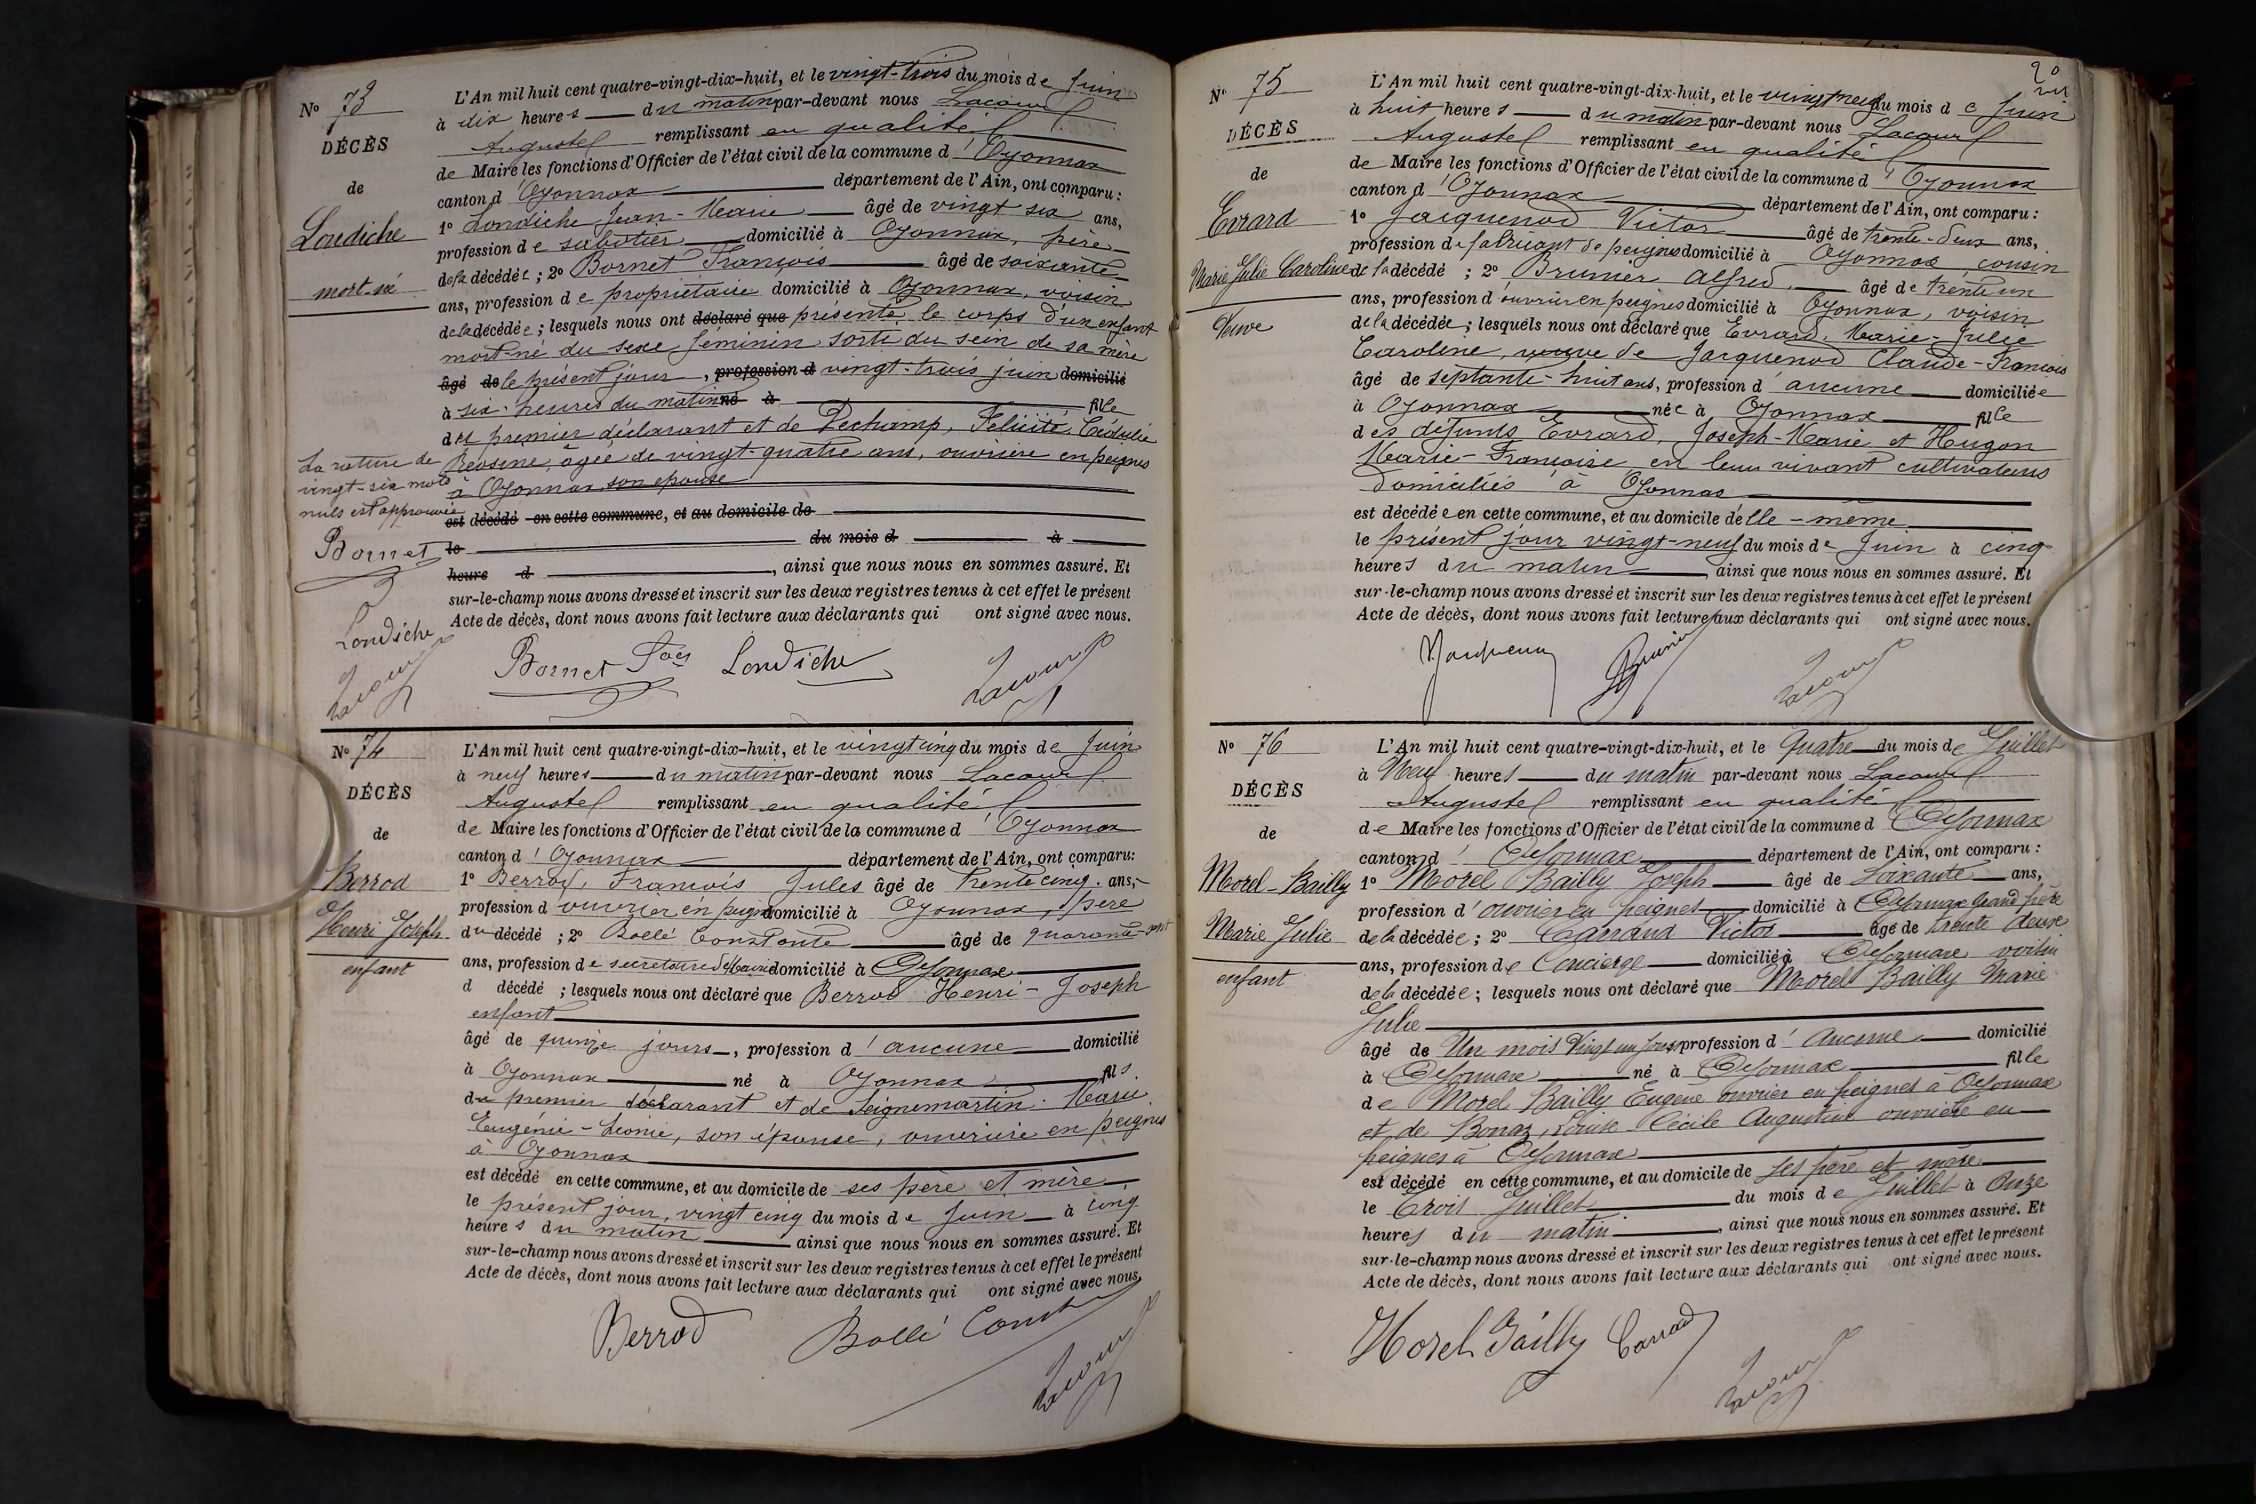 N° 73
DÉCÈS
de
Londiche
mort-né
L'An mil huit cent quatre-vingt-dix-huit, et le vingt-trois du mois de Juin
à dix heures du matin par-devant nous Lacour
Auguste remplissant en qualité
de Maire les fonctions d'Officier de l'état civil de la commune d'Oyonnax
canton d'Oyonnax département de l'Ain, ont comparu :
1° Londiche Jean-Marie âgé de vingt six ans,
profession de sabotier domicilié à Oyonnax, père
de la décédée ; 2° Bornet François âgé de soixante
ans, profession de propriétaire domicilié à Oyonnax, voisin
de la décédée ; lesquels nous ont déclaré que présenté le corps d'un enfant
mort-né du sexe féminin sorti du sein de sa mère
âgé de le présent jour, profession d vingt-trois juin domicilié
à six heures du matin né à fille
du premier déclarant et de Dechamp, Félicité
âgée de vingt-quatre ans, ouvrière en peignes
à Oyonnax son épouse
est décédé en cette commune, et au domicile de
le du mois d à
heure d , ainsi que nous nous en sommes assuré. Et
sur-le-champ nous avons dressé et inscrit sur les deux registres tenus à cet effet le présent
Acte de décès, dont nous avons fait lecture aux déclarants qui ont signé avec nous.
La rature de
vingt-six mots
nuls est approuvée
Bornet
Londiche
Lacour
Bornet Fois Londiche Lacour
N° 74
DÉCÈS
de
Berrod
Henri Joseph
enfant
L'An mil huit cent quatre-vingt-dix-huit, et le vingt cinq du mois de Juin
à neuf heures du matin par-devant nous Lacour
Auguste remplissant en qualité
de Maire les fonctions d'Officier de l'état civil de la commune d'Oyonnax
canton d'Oyonnax département de l'Ain, ont comparu :
1° Berrod, François Jules âgé de trente cinq ans,
profession d'ouvrier en peignes domicilié à Oyonnax, père
du décédé ; 2° Bollé Constante âgé de quarante-sept
ans, profession de secrétaire de Mairie domicilié à Oyonnax
d décédé ; lesquels nous ont déclaré que Berrod Henri-Joseph
enfant
âgé de quinze jours, profession d'aucune domicilié
à Oyonnax né à Oyonnax fils
du premier déclarant et de Seignemartin Marie
Eugénie-Léonie, son épouse, ouvrière en peignes
à Oyonnax
est décédé en cette commune, et au domicile de ses père et mère
le présent jour, vingt cinq du mois de Juin à cinq
heures du matin ainsi que nous nous en sommes assuré. Et
sur-le-champ nous avons dressé et inscrit sur les deux registres tenus à cet effet le présent
Acte de décès, dont nous avons fait lecture aux déclarants qui ont signé avec nous.
Berrod Bollé Const Lacour
20
N° 75
DÉCÈS
de
Evrard
Marie Julie Caroline
Veuve
L'An mil huit cent quatre-vingt-dix-huit, et le vingt neuf du mois de Juin
à huit heures du matin par-devant nous Lacour
Auguste remplissant en qualité
de Maire les fonctions d'Officier de l'état civil de la commune d'Oyonnax
canton d'Oyonnax département de l'Ain, ont comparu :
1° Jacquenod Victor âgé de trente-deux ans,
profession de fabricant de peignes domicilié à Oyonnax, cousin
de la décédé ; 2° Brunier Alfred, âgé de trente un
ans, profession d'ouvrier en peignes domicilié à Oyonnax, voisin
de la décédée ; lesquels nous ont déclaré que Evrard, Marie-Julie
Caroline, veuve de Jacquenod Claude-François
âgé de septante-huit ans, profession d'aucune domiciliée
à Oyonnax née à Oyonnax fille
des défunts Evrard, Joseph-Marie et Hugon
Marie-Françoise en leur vivant cultivateurs
domiciliés à Oyonnax
est décédée en cette commune, et au domicile d'elle-même
le présent jour vingt-neuf du mois de Juin à cinq
heures du matin , ainsi que nous nous en sommes assuré. Et
sur-le-champ nous avons dressé et inscrit sur les deux registres tenus à cet effet le présent
Acte de décès, dont nous avons fait lecture aux déclarants qui ont signé avec nous.
Lacour
N° 76
DÉCÈS
de
Morel-Bailly
Marie Julie
enfant
L'An mil huit cent quatre-vingt-dix-huit, et le Quatre du mois de Juillet
à Neuf heures du matin par-devant nous Lacour
Auguste remplissant en qualité
de Maire les fonctions d'Officier de l'état civil de la commune d Oyonnax
canton d'Oyonnax département de l'Ain, ont comparu :
1° Morel Bailly Joseph âgé de soixante ans,
profession d'ouvrier en peignes domicilié à Oyonnax grand père
de la décédée ; 2° Carraud Victor âgé de trente deux
ans, profession de Concierge domicilié à Oyonnax voisin
de la décédée ; lesquels nous ont déclaré que Morel Bailly Marie
Julie
âgé de Un mois vingt un jours profession d'aucune domicilié
à Oyonnax né à Oyonnax fille
de Morel Bailly Eugène ouvrier en peignes à Oyonnax
et de Bonaz, Louise Cécile Augustine ouvrière en
peignes à Oyonnax
est décédé en cette commune, et au domicile de ses père et mère
le trois Juillet du mois de Juillet à Onze
heures du matin , ainsi que nous nous en sommes assuré. Et
sur-le-champ nous avons dressé et inscrit sur les deux registres tenus à cet effet le présent
Acte de décès, dont nous avons fait lecture aux déclarants qui ont signé avec nous.
Morel Bailly Carraud Lacour